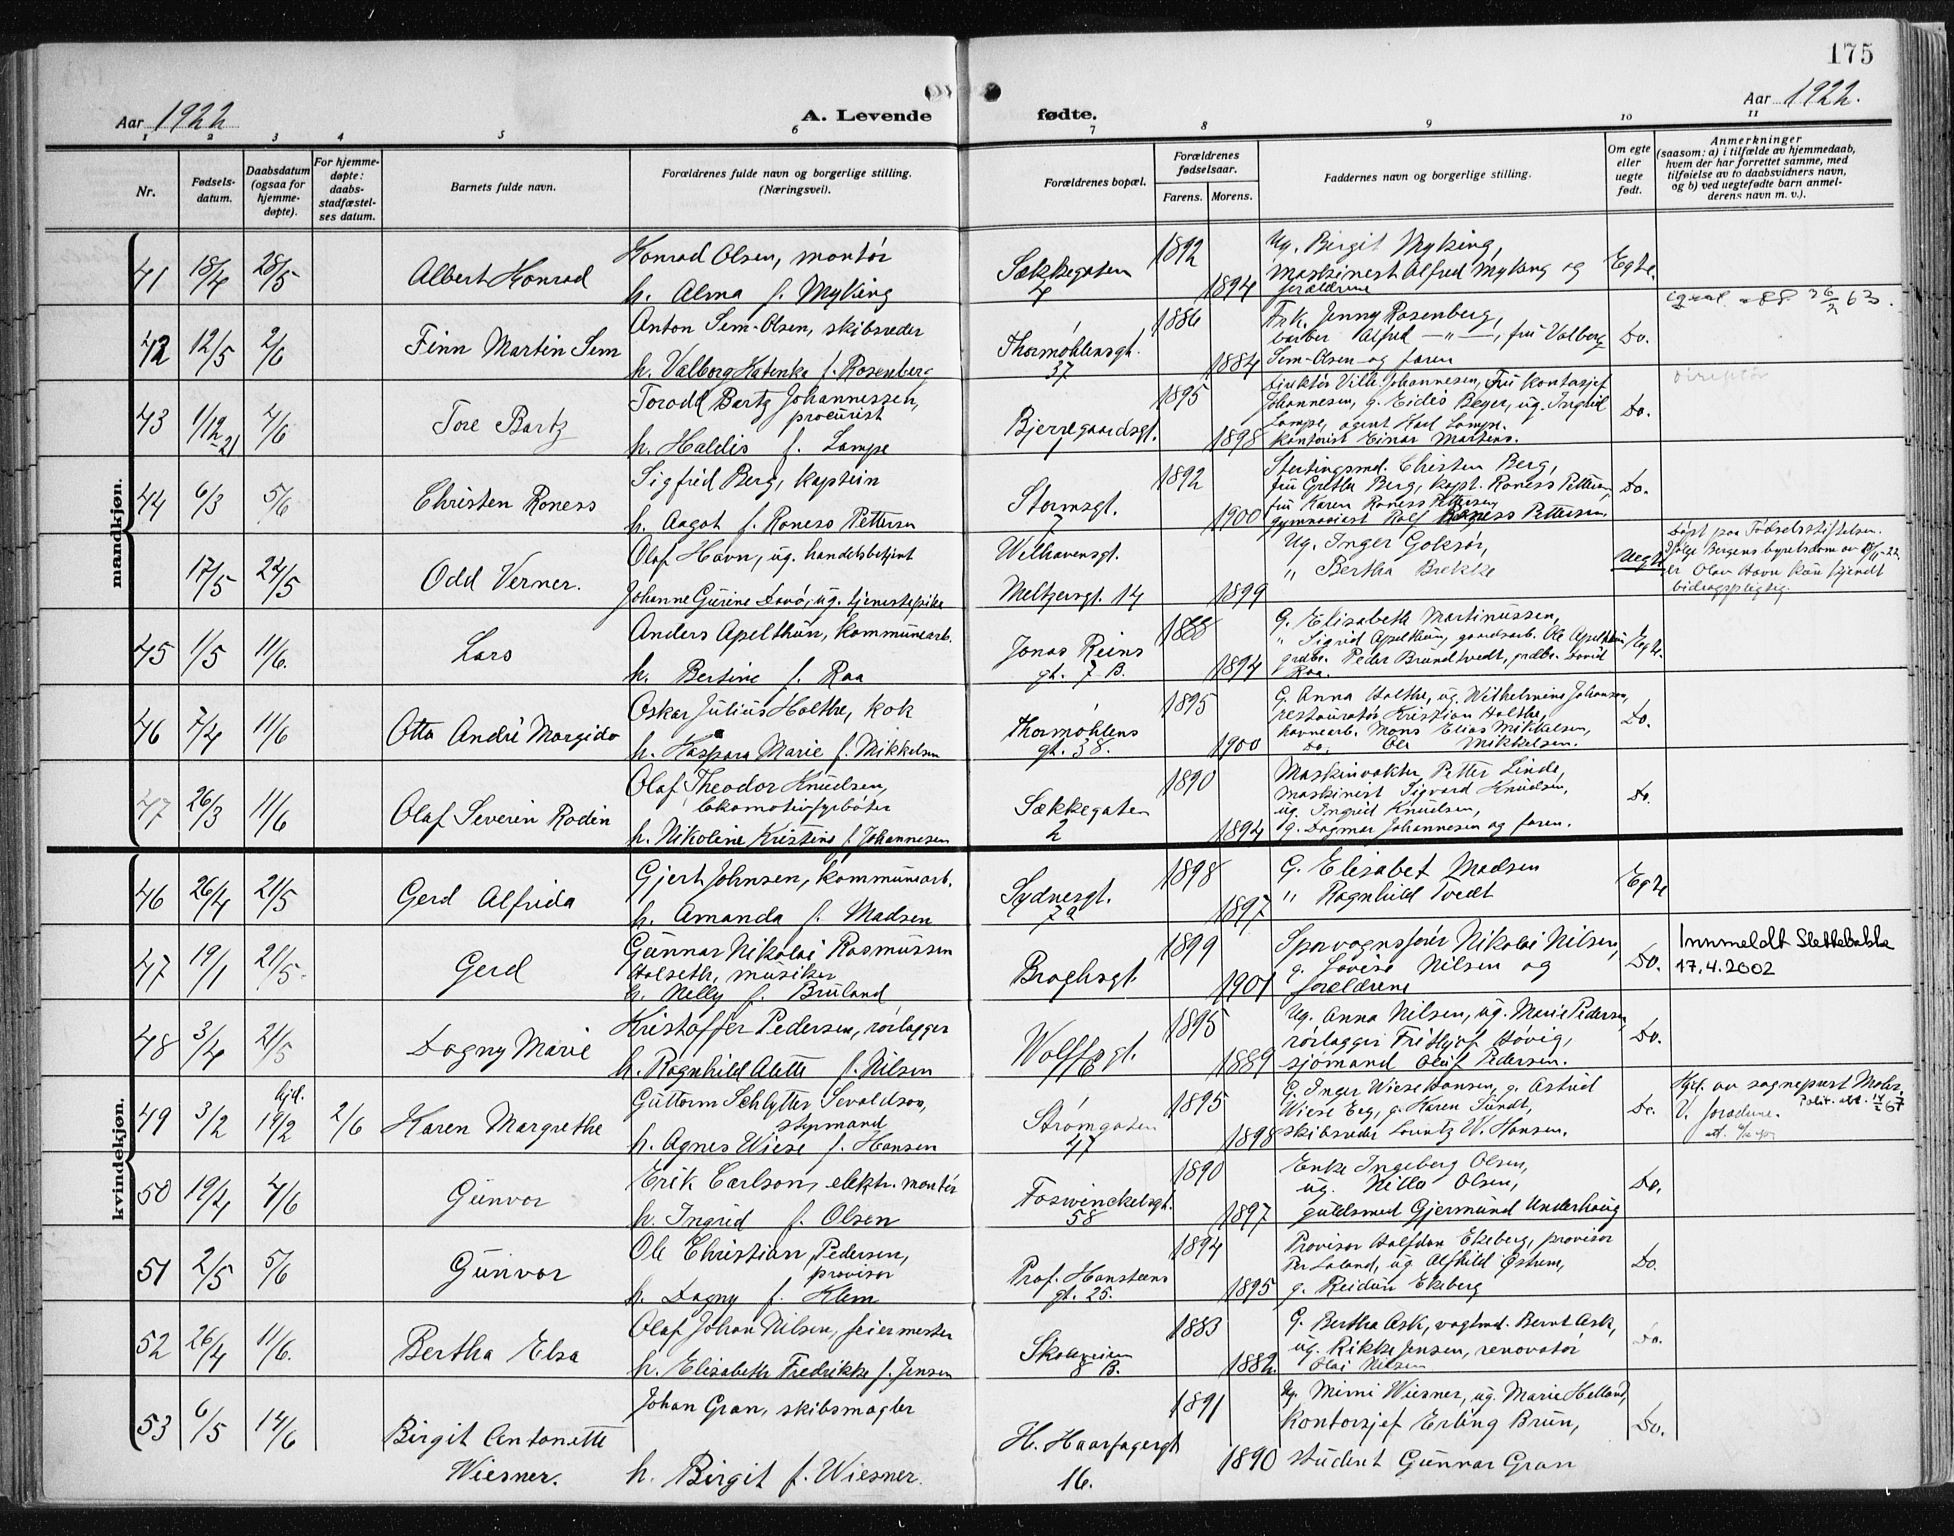 175
Aar 1922
A. Levende fødte.
Aar 1922.
1 2 3 4 5 6 7 8 9 10 11
Nr.
Fødsels-
datum.
Daabsdatum
(ogsaa for
hjemme-
døpte).
For hjemme-
døpte:
daabs-
stadfæstel-
ses datum.
Barnets fulde navn.
Forældrenes fulde navn og borgerlige stilling.
(Næringsvei).
Forældrenes bopæl.
Forældrenes
fødselsaar.
Farens. Morens.
Faddernes navn og borgerlige stilling.
Om egte
eller
uegte
født.
Anmerkninger
(saasom: a) i tilfælde av hjemmedaab,
hvem der har forrettet samme, med
tilføielse av to daabsvidners navn,
og b) ved uegtefødte barn anmel-
derens navn m. v.).
mandkjøn.
41 18/4 28/5 Albert Konrad
Konrad Olsen, montør
h. Alma f. Myking
Sækkegaten
4
1892 1894
Ug. Birgit Myking,
maskinist Alfred Myking og
forældrene
Egte.
42 12/5 2/6 Finn Martin Sem
Anton Sem-Olsen, skibsreder
h. Valborg Katenka f. Rosenberg
Thormøhlensgt.
37
1886 1884
Frk. Jenny Rosenberg,
barber Alfred —"—, fru Valborg
Sem-Olsen og faren
Do.
43 1/12 21 4/6 Tore Bartz
Torodd Bartz Johannessen,
procurist
h. Haldis f. Lampe
Bjerregaardsgt.
1
1895 1898
Direktør Vilh. Johannesen, Fru Kontorsjef
Johannesen, g. Eidis Beyer, ug. Ingrid
Lampe, agent Karl Lampe.
kontorist Einar Martens.
Do.
direktør
44 6/3 5/6 Christen Roness
Sigfred Berg, kaptein
h. Aagot f. Roness Pettersen
Stormsgt.
7
1892 1900
Stertingsmd. Christen Berg,
fru Grethe Berg, kapt. Roness Pettersen,
fru Karen Roness Pettersen
gymnasiast Rolf Roness Pettersen.
Do.
17/5 27/5 Odd Verner.
Olaf Havn, ug. handelsbetjent
Johanne Gurine Davø, ug. tjenestepike
Welhavensgt.
Meltzersgt. 14
1899
Ug. Inger Goksør,
" Bertha Brekke
Uegte
Døpt paa Fødselsstiftelsen.
Ifølge Bergens byretsdom av
er Olav Havn kun kjendt
bidragspligtig.
45 1/5 11/6. Lars
Anders Apelthun, kommunearb.
h. Bertine f. Raa
Jonas Reins
gt. 7 B.
1888 1894
G. Elisabeth Martinussen,
" Sigrid Apelthun, gaardsarb. Ole Apelthun
grdbr. Peder Brundtvedt, grdbr. David
Raa.
Egte.
46 7/4 11/6 Otto André Margido
Oskar Julius Holthe, kok
h. Kaspara Marie f. Mikkelsen
Thormøhlens
gt. 38.
1895 1900
G. Anna Holthe, ug. Wilhelmine Johanson,
restauratør Kristian Holthe,
havnearb. Mons Elias Mikkelsen,
Do. Ole Mikkelsen.
Do.
47 26/3 11/6 Olaf Severin Rodin
Olaf Theodor Knudsen,
lokomotivfyrbøter
h. Nikoline Kristine f. Johannesen
Sækkegaten
2
1890 1894
Maskinvakter Petter Linde,
maskinist Sigvard Knudsen,
ug. Ingrid Knudsen,
g. Dagmar Johannesen og faren.
Do.
kvindekjøn.
46 26/4 21/5 Gerd Alfrida
Gjert Johnsen, kommunearb.
h. Amanda f. Madsen
Sydnesgt.
7a
1898 1897
G. Elisabet Madsen
" Ragnhild Tvedt
Egte
47 19/1 21/5. Gerd
Gunnar Nikolai Rasmussen
Halseth, musiker
h. Nelly f. Bruland
Brochsgt.
1899 1901
Sporvognsfører Nikolai Nilsen,
g. Lovise Nilsen og
forældrene
Do.
Innmeldt Slettebakk
17.4.2002
48 3/4 21/5 Dagny Marie
Kristoffer Pedersen, rørlægger
h. Ragnhild Alette f. Nilsen
Wolffsgt.
11
1895 1889
Ug. Anna Nilsen, ug. Marie Pedersen
rørlægger Fridtjof Høvig,
sjømand Oluf Pedersen.
Do.
49 3/2 hjd. 19/2 2/6 Karen Margrethe
Guttorm Schlytter Sevaldson,
styrmand
h. Agnes Wiese f. Hansen
Strømgaten
47
1895 1898
G. Inger Wiese Hansen, g. Astrid
Wiese Erg, g. Karen Sundt,
skibsreder Lauritz W. Hansen.
Do.
Hjd. av sogneprest Mohr.
V. forældrene.
50 19/4 4/6 Gunvor
Erik Carlson, elektr. montør
h. Ingrid f. Olsen
Foswinckelsgt.
58
1890 1897
Enke Ingeborg Olsen,
ug. Nilla Olsen,
guldsmed Gjermund Underhaug
Do.
51 2/5 5/6 Gunvor
Ole Christian Pedersen,
provisor
h. Dagny f. Klem
Prof. Hansteens
gt. 25.
1894 1895
Provisor Halfdan Ekeberg, provisor
Per Laland, ug Alfhild Østrem,
g. Reidun Ekeberg
Do.
52 26/4 11/6. Bertha Elsa
Olaf Johan Nilsen, feiermester
h. Elisabeth Fredrikke f. Jensen
Skoleveien
8 B.
1883 1882.
G. Bertha Ask, vagtmd. Bernt Ask,
ug. Rikke Jensen, renovatør
Olai Nilsen
Do.
53 6/5 14/6 Birgit Antonette
Wiesner.
Johan Gran, skibsmægler
h. Birgit f. Wiesner.
H. Haarfagersgt
16.
1891 1890
Ug. Mimi Wiesner, ug. Marie Helland,
Kontorsjef Erling Brun,
student Gunnar Gran
Do.